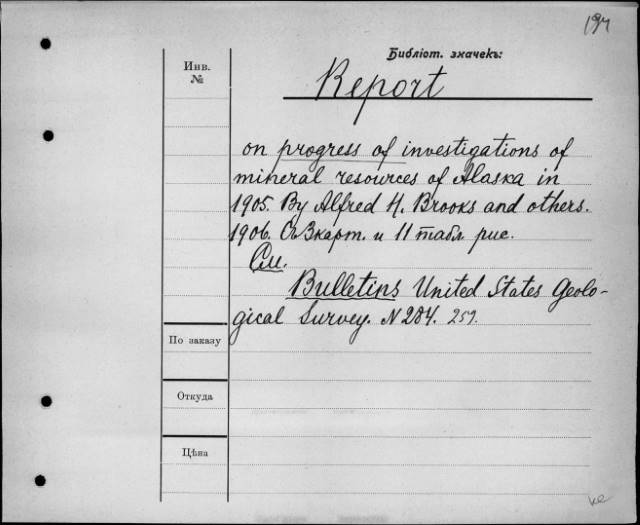 194
Библіот. значекъ:
Инв.
№
Report
on progress of investigations of
mineral resources of Alaska in
1905. By Alfred H. Brooks and others.
1906. Съ 3 карт. и 11 табл. рис.
См.
Bulletins United States Geolo-
gical Survey. N 284. 259.
По заказу
Откуда
Цѣна